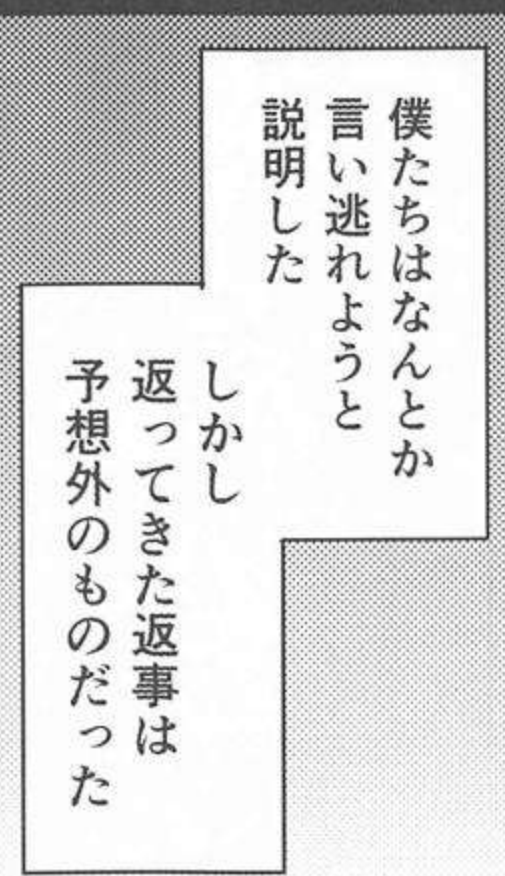 僕たちはなんとか
言い逃れようと
説明した
しかし
返ってきた返事は
予想外のものだった